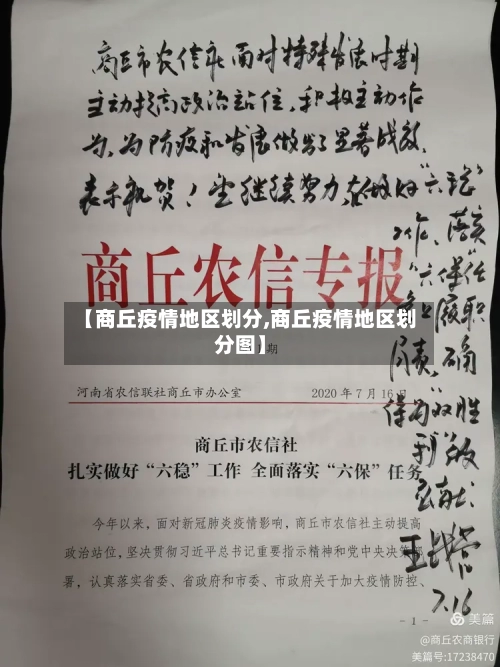 商丘市农信社面对特殊发展时期
主动提高政治站位、积极主动作
为，为防疫和发展做出了显著成效，
表示祝贺！望继续努力，在做好“六稳”
工作、落实
“六保”任
务上履职
尽责，确
保“双胜
利”
商丘农信专报
【商丘疫情地区划分,商丘疫情地区划
分图】
期
河南省农信联社商丘市办公室 2020年7月16日
商丘市农信社
扎实做好“六稳”工作 全面落实“六保”任务
今年以来，面对新冠肺炎疫情影响，商丘市农信社主动提高
政治站位，坚决贯彻习近平总书记重要指示精神和党中央决策部
署，认真落实省委、省政府和市委、市政府关于加大疫情防控、
7.16
- 1 -
美篇
@商丘农商银行
美篇号:17238470